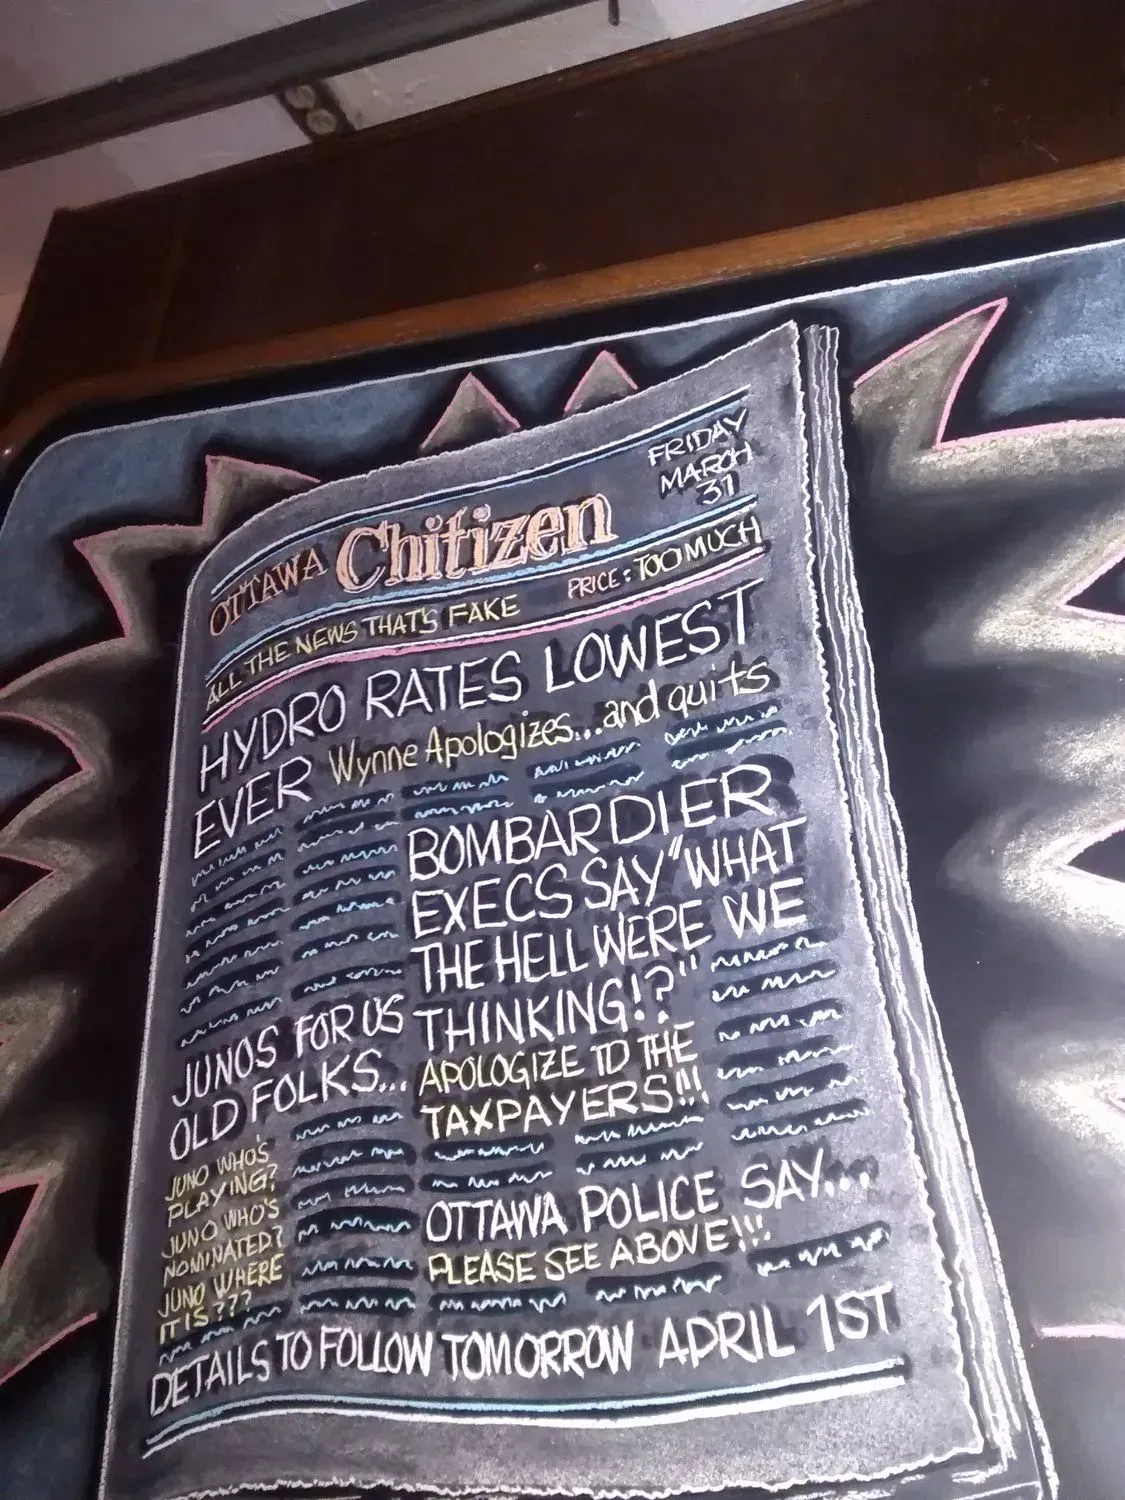 FRIDAY
MARCH
31
OTTAWA Chitizen
PRICE: TOO MUCH
ALL THE NEWS THAT'S FAKE
HYDRO RATES LOWEST
EVER Wynne Apologizes...and quits
BOMBARDIER
EXECS SAY "WHAT
THE HELL WERE WE
THINKING!?"
APOLOGIZE TO THE
TAXPAYERS!!!
JUNOS FOR US
OLD FOLKS...
JUNO WHO'S
PLAYING?
JUNO WHO'S
NOMINATED?
JUNO WHERE
IT IS???
OTTAWA POLICE SAY...
PLEASE SEE ABOVE!!!
DETAILS TO FOLLOW TOMORROW APRIL 1ST